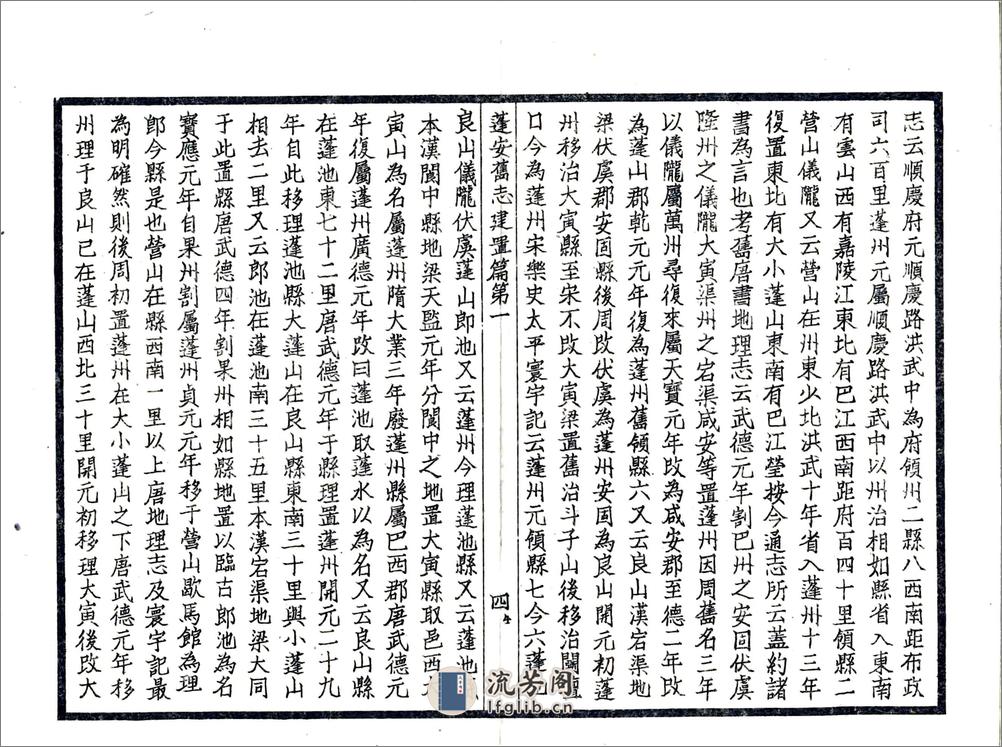 志云順慶府元順慶路洪武中為府領州二縣八西南距布政
司六百里蓬州元屬順慶路洪武中以州治相如縣省入東南
有雲山西有嘉陵江東北有巴江西南距府百四十里領縣二
營山儀隴又云營山在州東少北洪武十年省入蓬州十三年
復置東北有大小蓬山東南有巴江瑩按今通志所云蓋約諸
書為言也考舊唐書地理志云武德元年割巴州之安固伏虞
隆州之儀隴大寅渠州之宕渠咸安等置蓬州因周舊名三年
以儀隴屬萬州尋復來屬天寶元年改為咸安郡至德二年改
為蓬山郡乾元元年復為蓬州舊領縣六又云良山漢宕渠地
梁伏虞郡安固縣後周改伏虞為蓬州安固為良山開元初蓬
州移治大寅縣至宋不改大寅梁置舊治斗子山後移治鬭壇
口今為蓬州宋樂史太平寰宇記云蓬州元領縣七今六蓬池
蓬安舊志建置篇第一
四
良山儀隴伏虞蓬山郎池又云蓬州今理蓬池縣又云蓬池
本漢閬中縣地梁天監元年分閬中之地置大寅縣取邑西
寅山為名屬蓬州隋大業三年廢蓬州縣屬巴西郡唐武德元
年復屬蓬州廣德元年改曰蓬池取蓬水以為名又云良山縣
在蓬池東七十二里唐武德元年于縣理置蓬州開元二十九
年自此移理蓬池縣大蓬山在良山縣東南三十里與小蓬山
相去二里又云郎池在蓬池南三十五里本漢宕渠地梁大同
于此置縣唐武德四年割果州相如縣地置以臨古郎池為名
寶應元年自果州割屬蓬州貞元元年移于營山歇馬館為理
郎今縣是也營山在縣西南一里以上唐地理志及寰宇記最
為明確然則後周初置蓬州在大小蓬山之下唐武德元年移
州理于良山已在蓬山西北三十里開元初移理大寅後改大
流芳阁
lfglib.cn